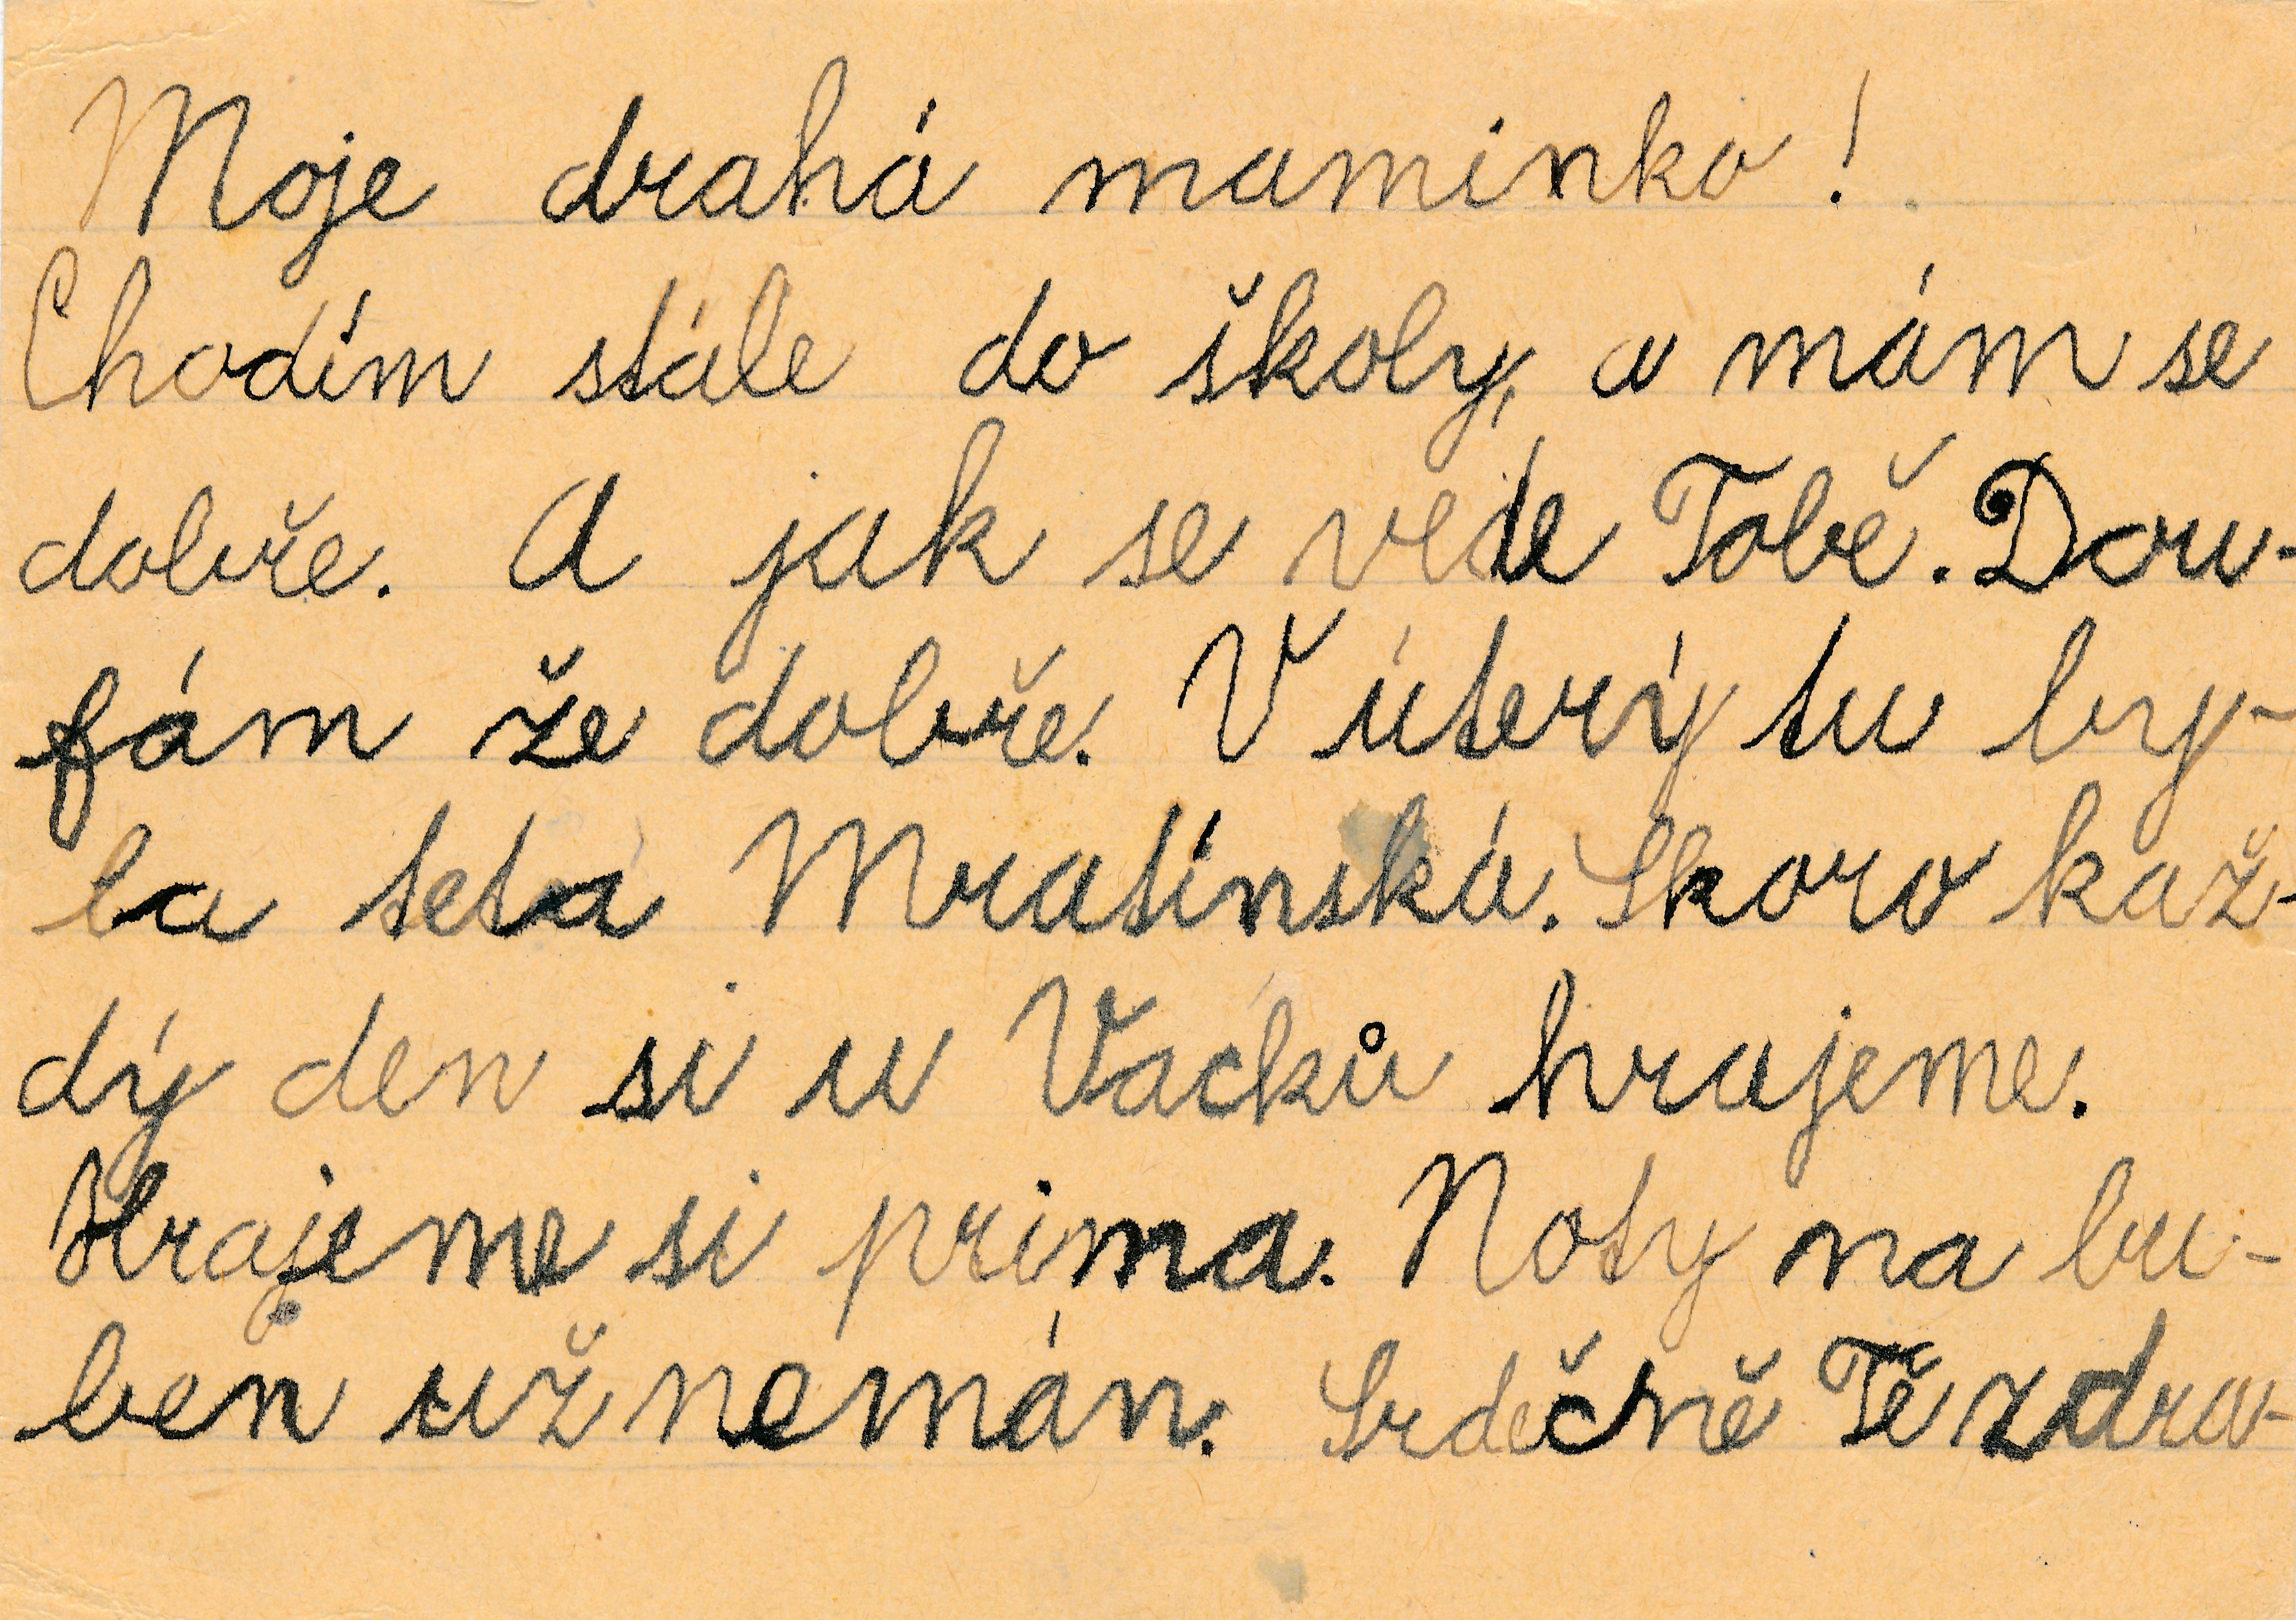 Moje drahá maminko!
Chodím stále do školy, a mám se
dobře. A jak se vede Tobě. Dou-
fám že dobře. V úterý tu by-
la teta Mratínská. Skoro kaž-
dý den si u Vacků hrajeme.
Hrajeme si prima. Noty na bu-
ben už nemán. Srdečně Tě zdra-